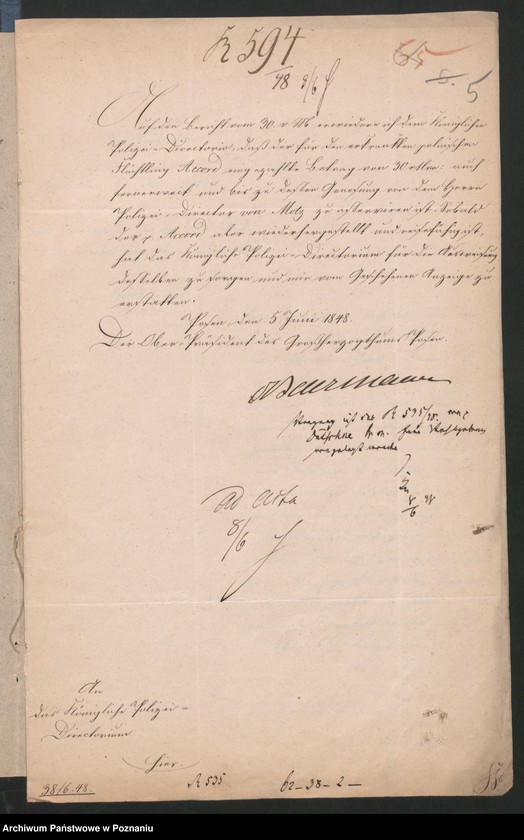 R 594
/48 8/6
65
8. 5
Auf den Bericht vom 30. v. M. erwiedere ich dem Königlichen
Polizei-Directorio, daß der für den erkrankten polnischen
Flüchtling Accord eingezahlte Betrag von 30 rtlr: auch
fernerweit und bis zu dessen Genesung von dem Herrn
Polizei-Director von Motz zu asserviren ist. Sobald
der p. Accord aber wiederhergestellt und reisefähig ist,
hat das Königliche Polizei-Directorium für die Ausweisung
desselben zu sorgen und mir vom Geschehenen Anzeige zu
erstatten.
Posen, den 5 Juni 1848.
Der Ober-Präsident des Großherzogthums Posen.
Beurmann
ist das R 595/48.
vorgelegt
8/6 48
ad acta
8/6
An
das Königliche Polizei-
Directorium
hier.
38/6.48.
R 535
62-38-2-
Archiwum Państwowe w Poznaniu